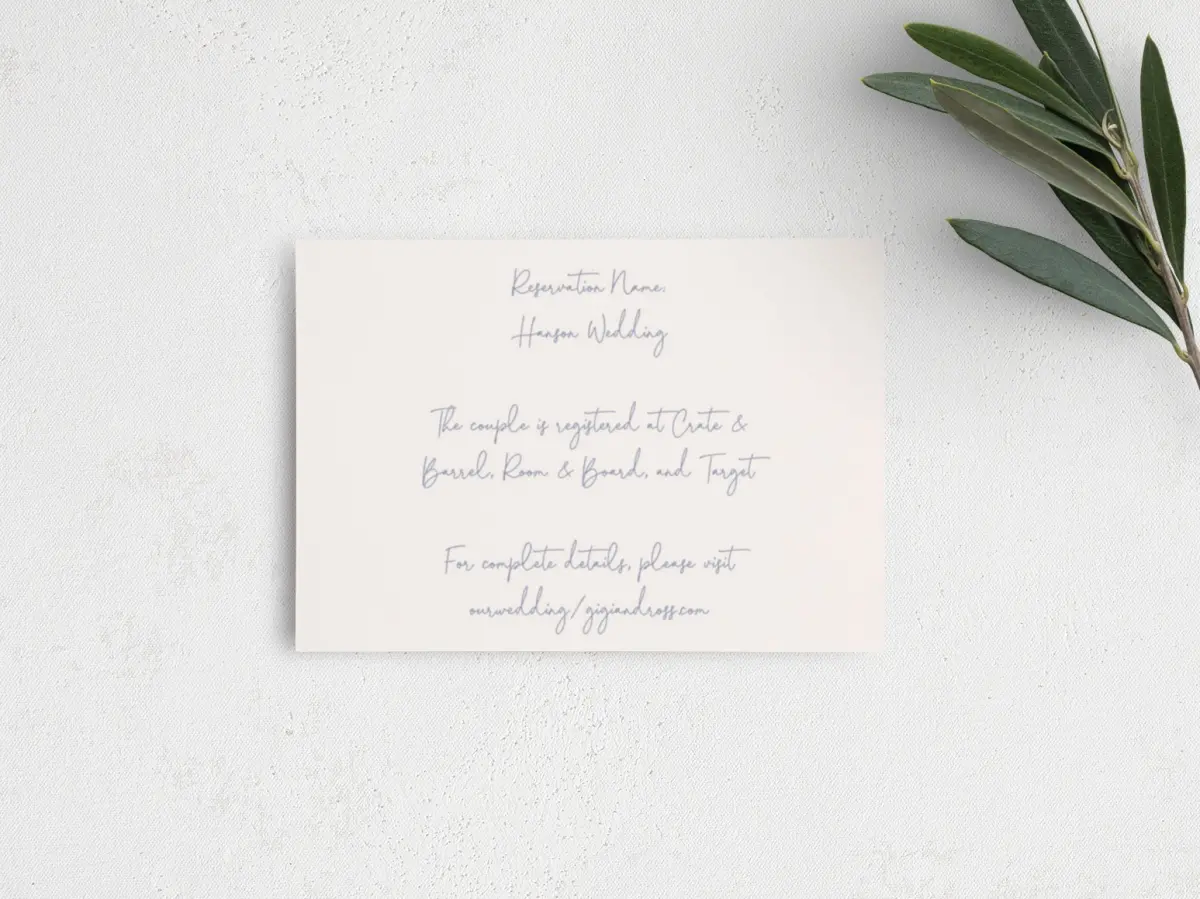 Reservation Name:
Hanson Wedding
The couple is registered at Crate &
Barrel, Room & Board, and Target
For complete details, please visit
ourwedding/gigiandross.com